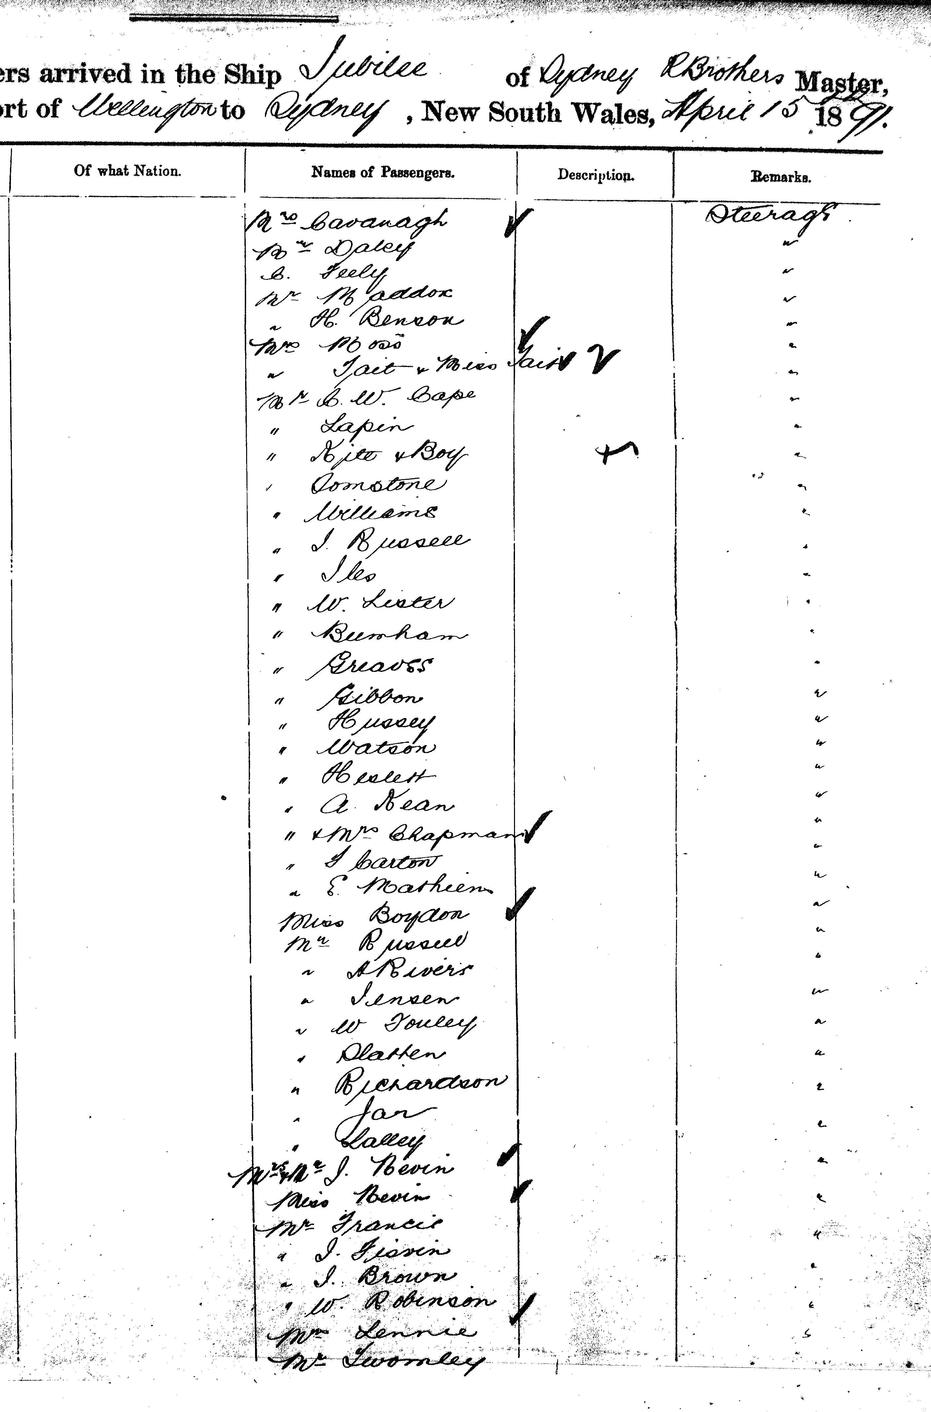 ers arrived in the Ship Jubilee of Sydney R Brothers Master,
ort of Wellington to Sydney, New South Wales, April 15th 1891.
Of what Nation. Names of Passengers. Description. Remarks.
Mrs Cavanagh ✓ Steerage
Mr Daley "
C. Feely "
Mr Maddox "
" H. Benson "
Mrs Moss ✓ "
" Tait & Miss Tait ✓ 2 "
Mr C. W. Cape "
" Lapin "
" & Boy "
" "
" Williams "
" J. Russell "
" Iles "
" W. Lister "
" Burnham "
" Greaves "
" Gibbon "
" Hussey "
" Watson "
" Heslett "
" A. Kean "
" & Mrs Chapman ✓ "
" T Carton "
" E. Mathiem "
Miss Boydon ✓ "
Mr Russell "
" A Rivers "
" Jensen "
" W Fouley "
" Slatten "
" Richardson "
" Jar "
" Lalley
Mrs & Mr J. Nevin ✓ "
Miss Nevin ✓ "
Mr Francis "
" J. "
" J. Brown "
" W. Robinson ✓ "
Lennie "
Mr Twomley